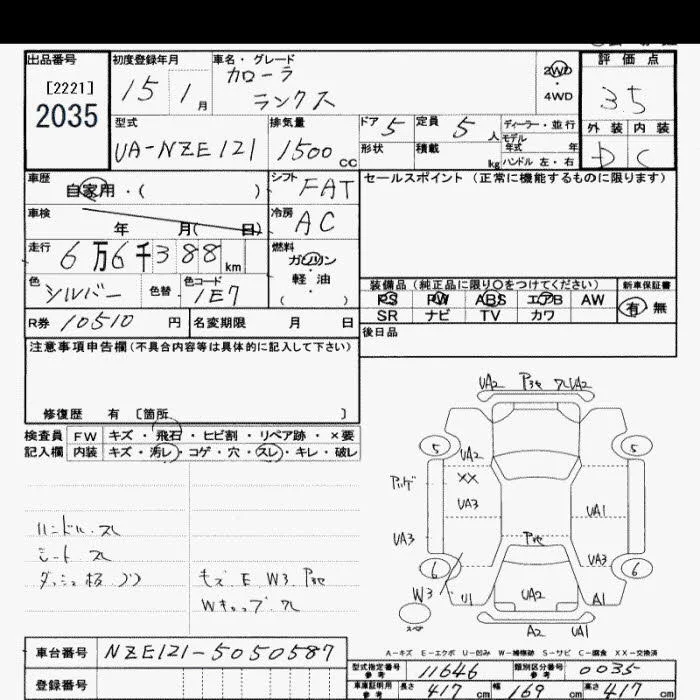 出品番号 初度登録年月 車名・グレード 評価点
[2221] 15 1月 カローラ 2WD 35
2035 ランクス ・4WD
外装 内装
型式 排気量 ドア 5 定員 5人 ディーラー・並行
UA-NZE121 1500cc 形状 積載 kg モデル年式 年 D C
ハンドル 左・右
車歴 自家用・( ) シフト FAT セールスポイント (正常に機能するものに限ります)
車検 年 月( 日) 冷房 AC
走行 6万6千388km 燃料 ガソリン・軽油・( )
色 シルバー 色替 色コード 1E7
装備品 (純正品に限り〇をつけてください) 新車保証書
PS PW ABS エアB AW 有・無
SR ナビ TV カワ
R券 10510円 名変期限 月 日
後日品
注意事項申告欄 (不具合内容等は具体的に記入して下さい)
修復歴 有 [箇所 ]
検査員 FW キズ・飛石・ヒビ割・リペア跡・×要
記入欄 内装 キズ・汚レ・コゲ・穴・スレ・キレ・破レ
UA2 P3セ ワレUA2
5 5
UA2
XX
UA3 UA1
ハンドル・スレ
シート スレ
UA3 P3セ UA3
6 6
キズ・E W3 P3セ
W3 U1 UA2 A1
Wキャップ・ワレ
スペア
A2 UA1
A-キズ E-エクボ U-凹み W-補修跡 S-サビ C-腐食 XX-交換済
車台番号 NZE121-5050587
登録番号
型式指定番号 参考 11646 類別区分番号 参考 0035
車庫証明用 参考 長さ 417cm 幅 169cm 高さ 417cm